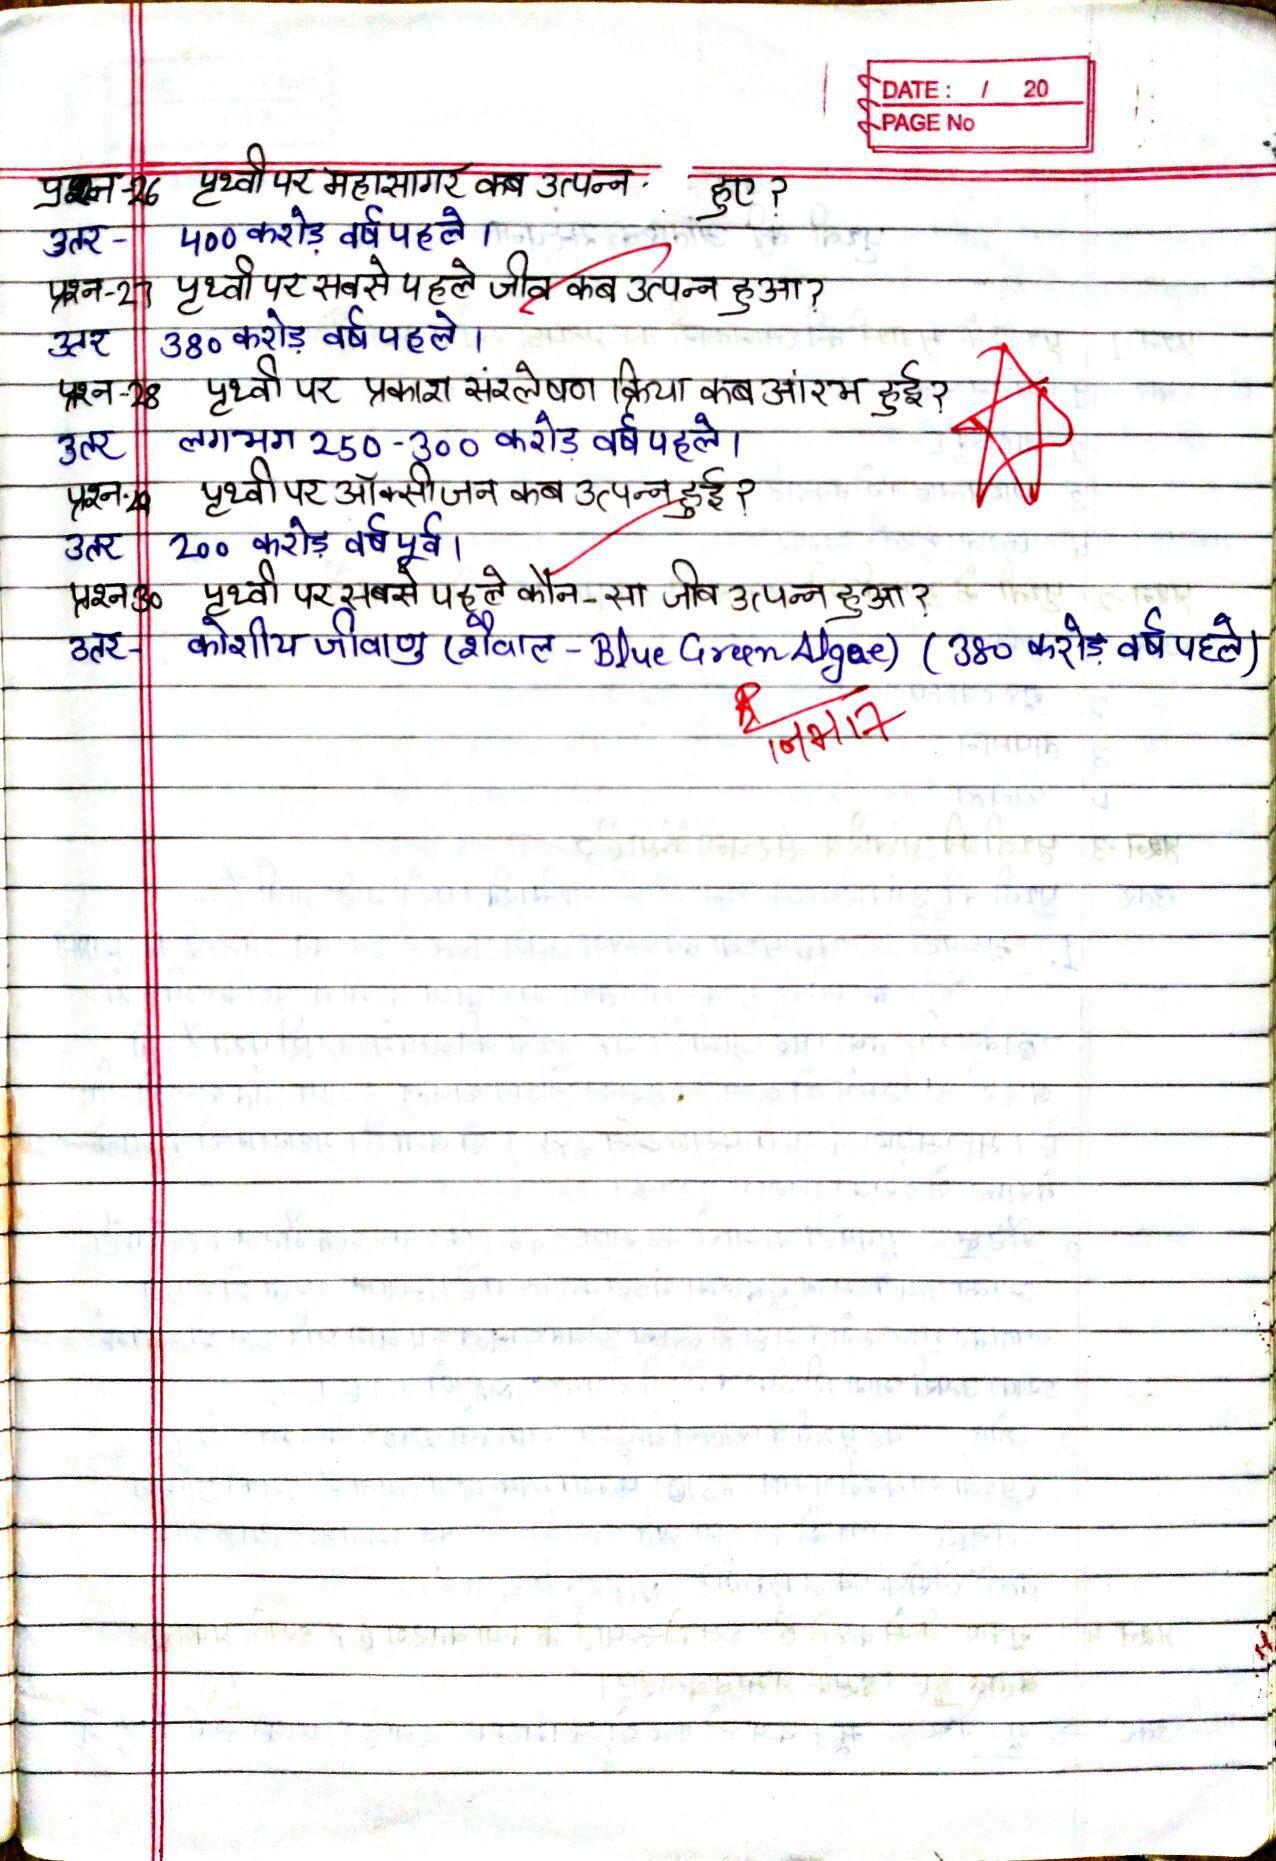 DATE : / 20
PAGE No
प्रश्न-26 पृथ्वी पर महासागर कब उत्पन्न हुए ?
उतर - 400 करोड़ वर्ष पहले ।
प्रश्न-27 पृथ्वी पर सबसे पहले जीव कब उत्पन्न हुआ ?
उतर 380 करोड़ वर्ष पहले ।
प्रश्न-28 पृथ्वी पर प्रकाश संश्लेषण क्रिया कब आंरभ हुई ?
उतर लगभग 250-300 करोड़ वर्ष पहले ।
प्रश्न-29 पृथ्वी पर ऑक्सीजन कब उत्पन्न हुई ?
उतर 200 करोड़ वर्ष पूर्व ।
प्रश्न 30 पृथ्वी पर सबसे पहले कौन-सा जीव उत्पन्न हुआ ?
उतर- कोशीय जीवाणु (शैवाल - Blue Green Algae) (380 करोड़ वर्ष पहले)